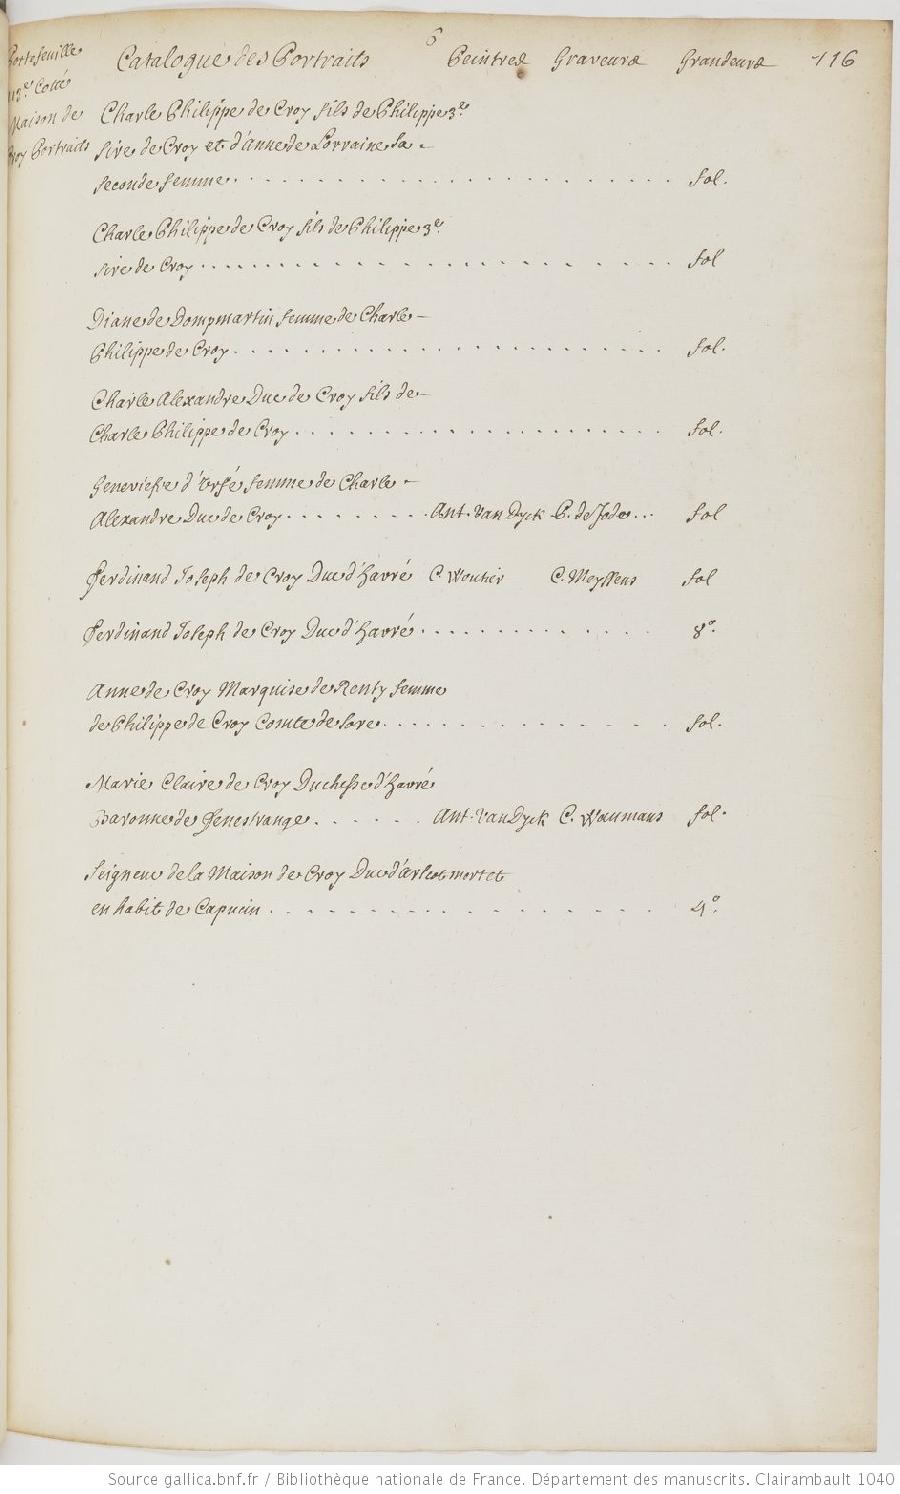 6
Catalogue des Portraits Peintres Graveurs Grandeurs 116
Portefeuille
113e Cotté
Maison de
Croy Portraits
Charle Philippe de Croy fils de Philippe 3e
Sire de Croy et d'Anne de Lorraine Sa
Seconde femme . . . . fol.
Charle Philippe de Croy fils de Philippe 3e
Sire de Croy . . . . fol
Diane de Dompmartin femme de Charle
Philippe de Croy . . . . fol.
Charle Alexandre Duc de Croy fils de
Charle Philippe de Croy . . . . fol.
Genevieve d'Urfé femme de Charle
Alexandre Duc de Croy . . . . Ant. Van Dyck P. de Jode . . . fol
Ferdinand Joseph de Croy Duc d'Havré C. Woutier C. Meyssens fol
Ferdinand Joseph de Croy Duc d'Havré . . . . 8o.
Anne de Croy Marquise de Renty femme
de Philippe de Croy Comte de Sore . . . . fol.
Marie Claire de Croy Duchesse d'Havré
Baronne de Fenestrange . . . . Ant. Van Dyck C. Waumans fol.
Seigneur de la Maison de Croy Duc d'Arscot mort et
en habit de Capucin . . . . 4o.
Source gallica.bnf.fr / Bibliothèque nationale de France. Département des manuscrits. Clairambault 1040